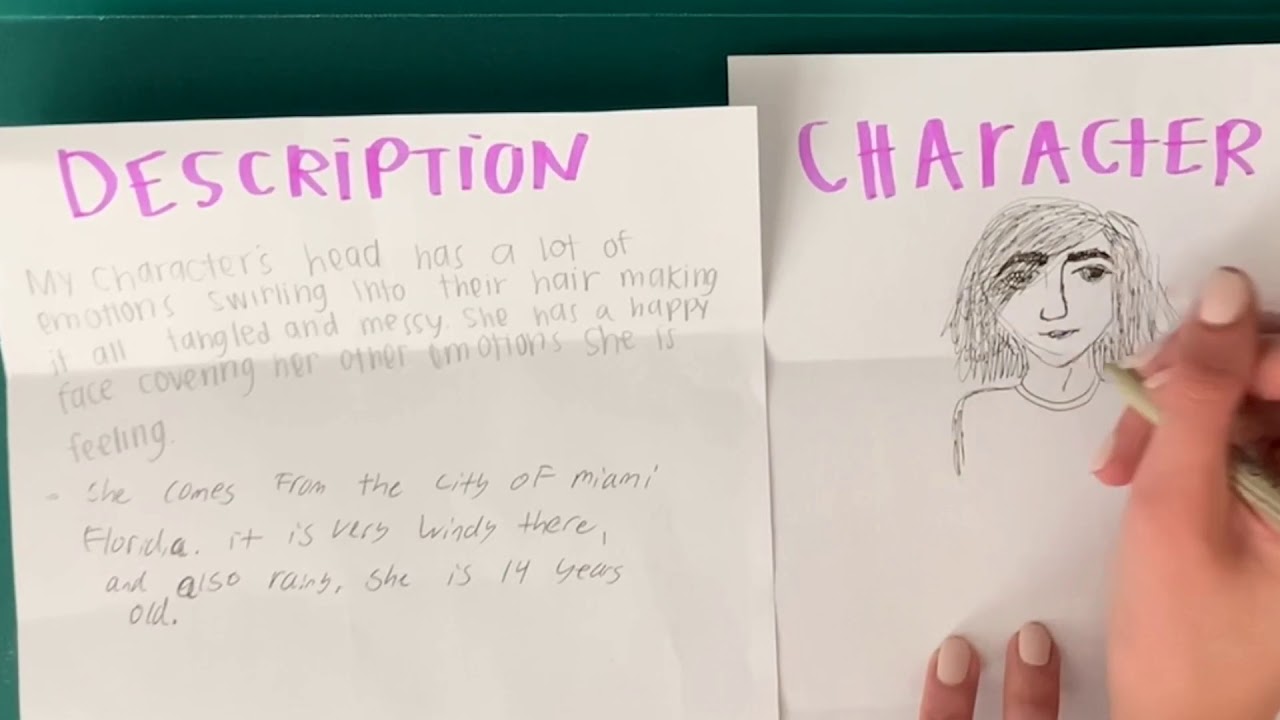 DESCRiPTiON
My character's head has a lot of
emotions swirling into their hair making
it all tangled and messy. She has a happy
face covering her other emotions she is
feeling.
- She comes From the city oF miami
Florida. it is very windy there,
and also rainy, She is 14 years
old.
CHArACtER